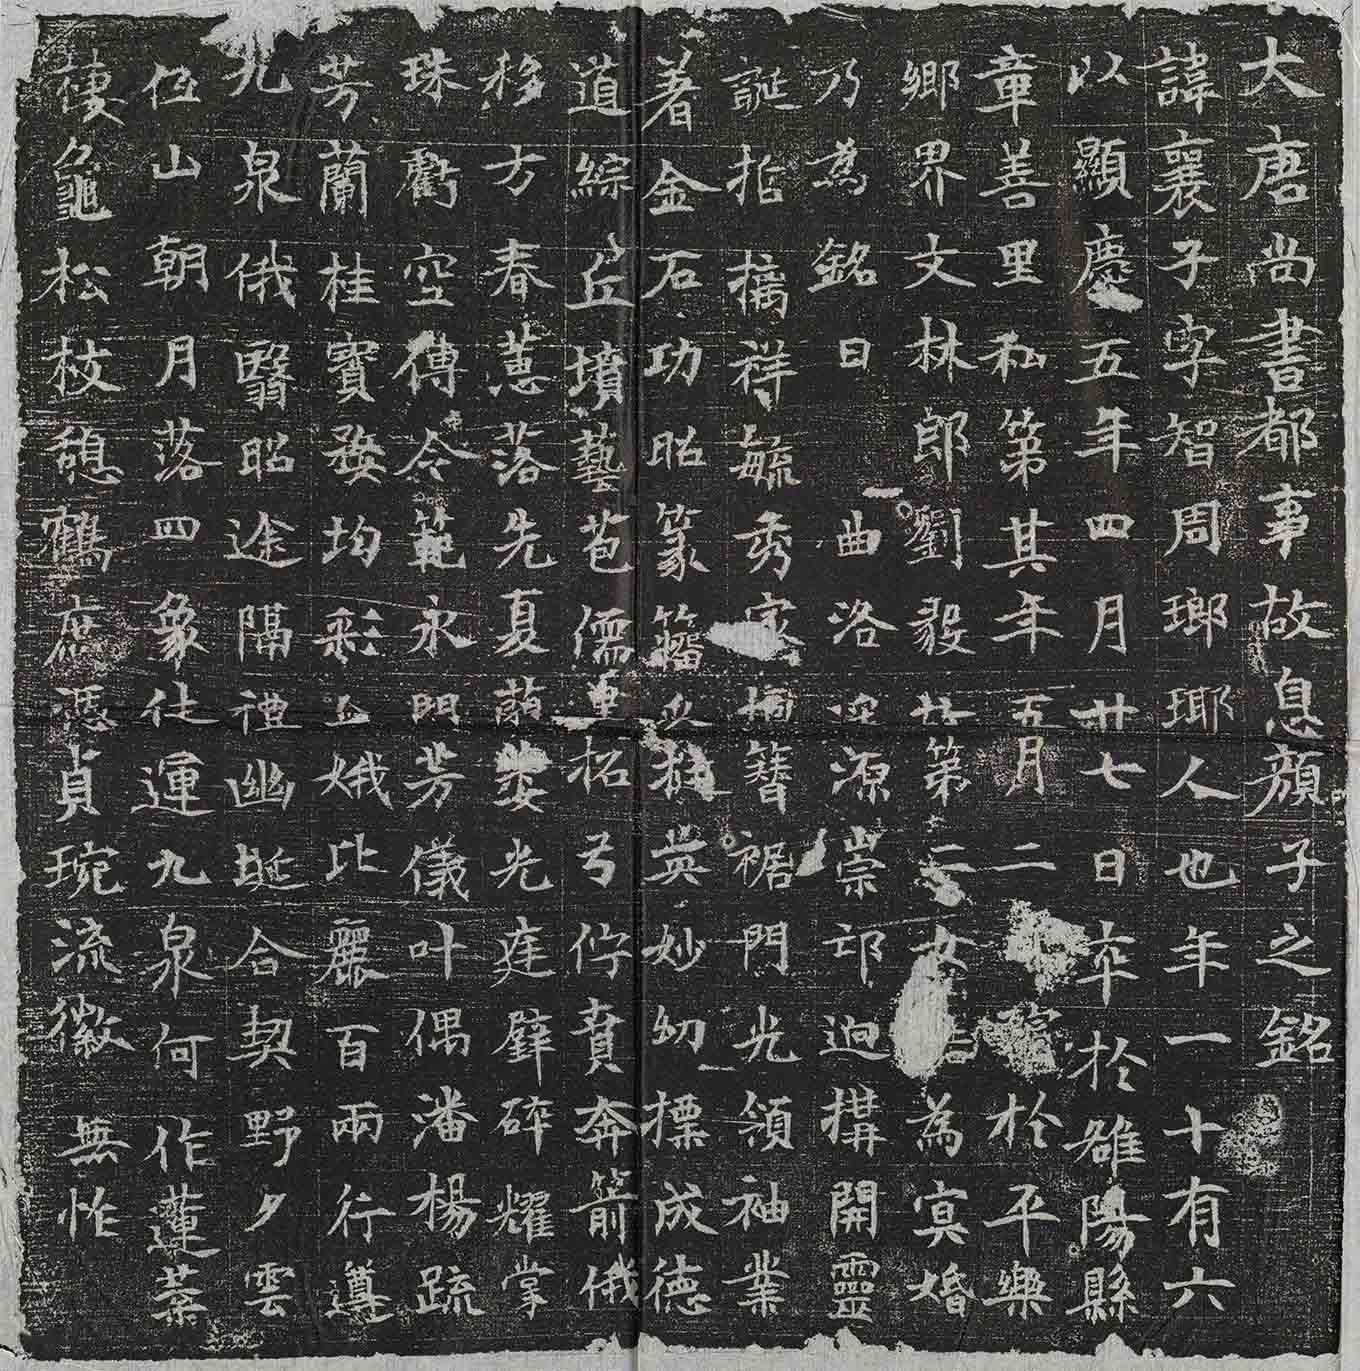 大唐尚書都事故息顏子之銘
諱襄子字智周瑯瑘人也年一十有六
以顯慶五年四月廿七日卒於雒陽縣
章善里私第其年五月二窆於平樂
鄉界文林郎劉毅故第二女結為冥婚
乃為銘曰曲洛深源崇邙迥構開靈
誕哲摛祥毓秀家擅簪裾門光領袖業
著金石功昭篆籀英妙幼摽成德
道綜丘墳藝苞儒墨柘弓佇賁奔箭俄
移方春蕙落先夏蘭萎光庭璧碎耀掌
珠虧空傳令範永芳儀叶偶潘楊疏
芳蘭桂寶婺均彩金娥比麗百兩行遵
九泉俄翳昭途隔禮幽埏合契野夕雲
低山朝月落四象徒運九泉何作蓮葉
棲龜松枝憩鶴庶憑貞琬流徽無怍